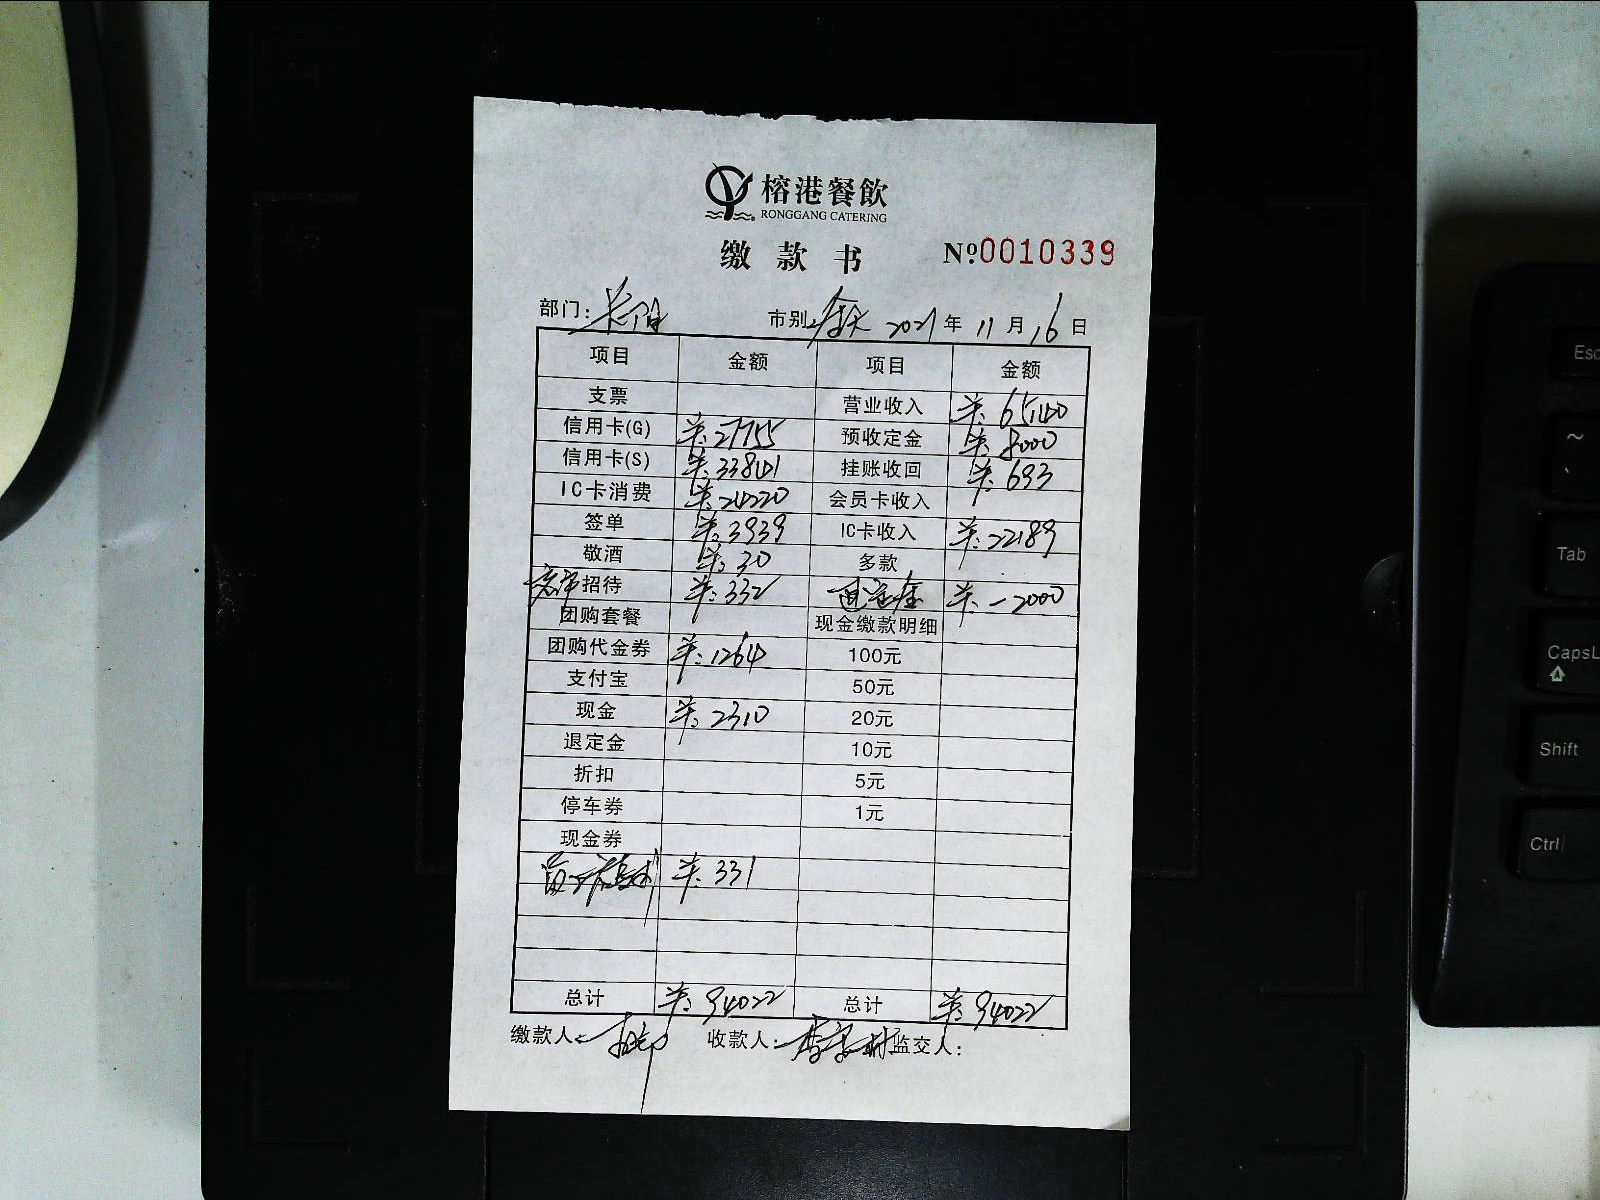 榕港餐飲
RONGGANG CATERING
缴款书 №0010339
部门: 市别: 全天 2021年11月16日
项目 金额 项目 金额
支票 营业收入 ¥:65140
信用卡(G) ¥:27755 预收定金 ¥:8000
信用卡(S) ¥:33841 挂账收回 ¥:693
IC卡消费 ¥:24220 会员卡收入
签单 ¥:3939 IC卡收入 ¥:22189
敬酒 ¥:30 多款
招待 ¥:332 退定金 ¥:-2000
团购套餐 现金缴款明细
团购代金券 ¥:1264 100元
支付宝 50元
现金 ¥:2310 20元
退定金 10元
折扣 5元
停车券 1元
现金券
¥:331
总计 ¥:94022 总计 ¥:94022
缴款人: 收款人: 监交人:
Esc
~
Tab
CapsL
Shift
Ctrl